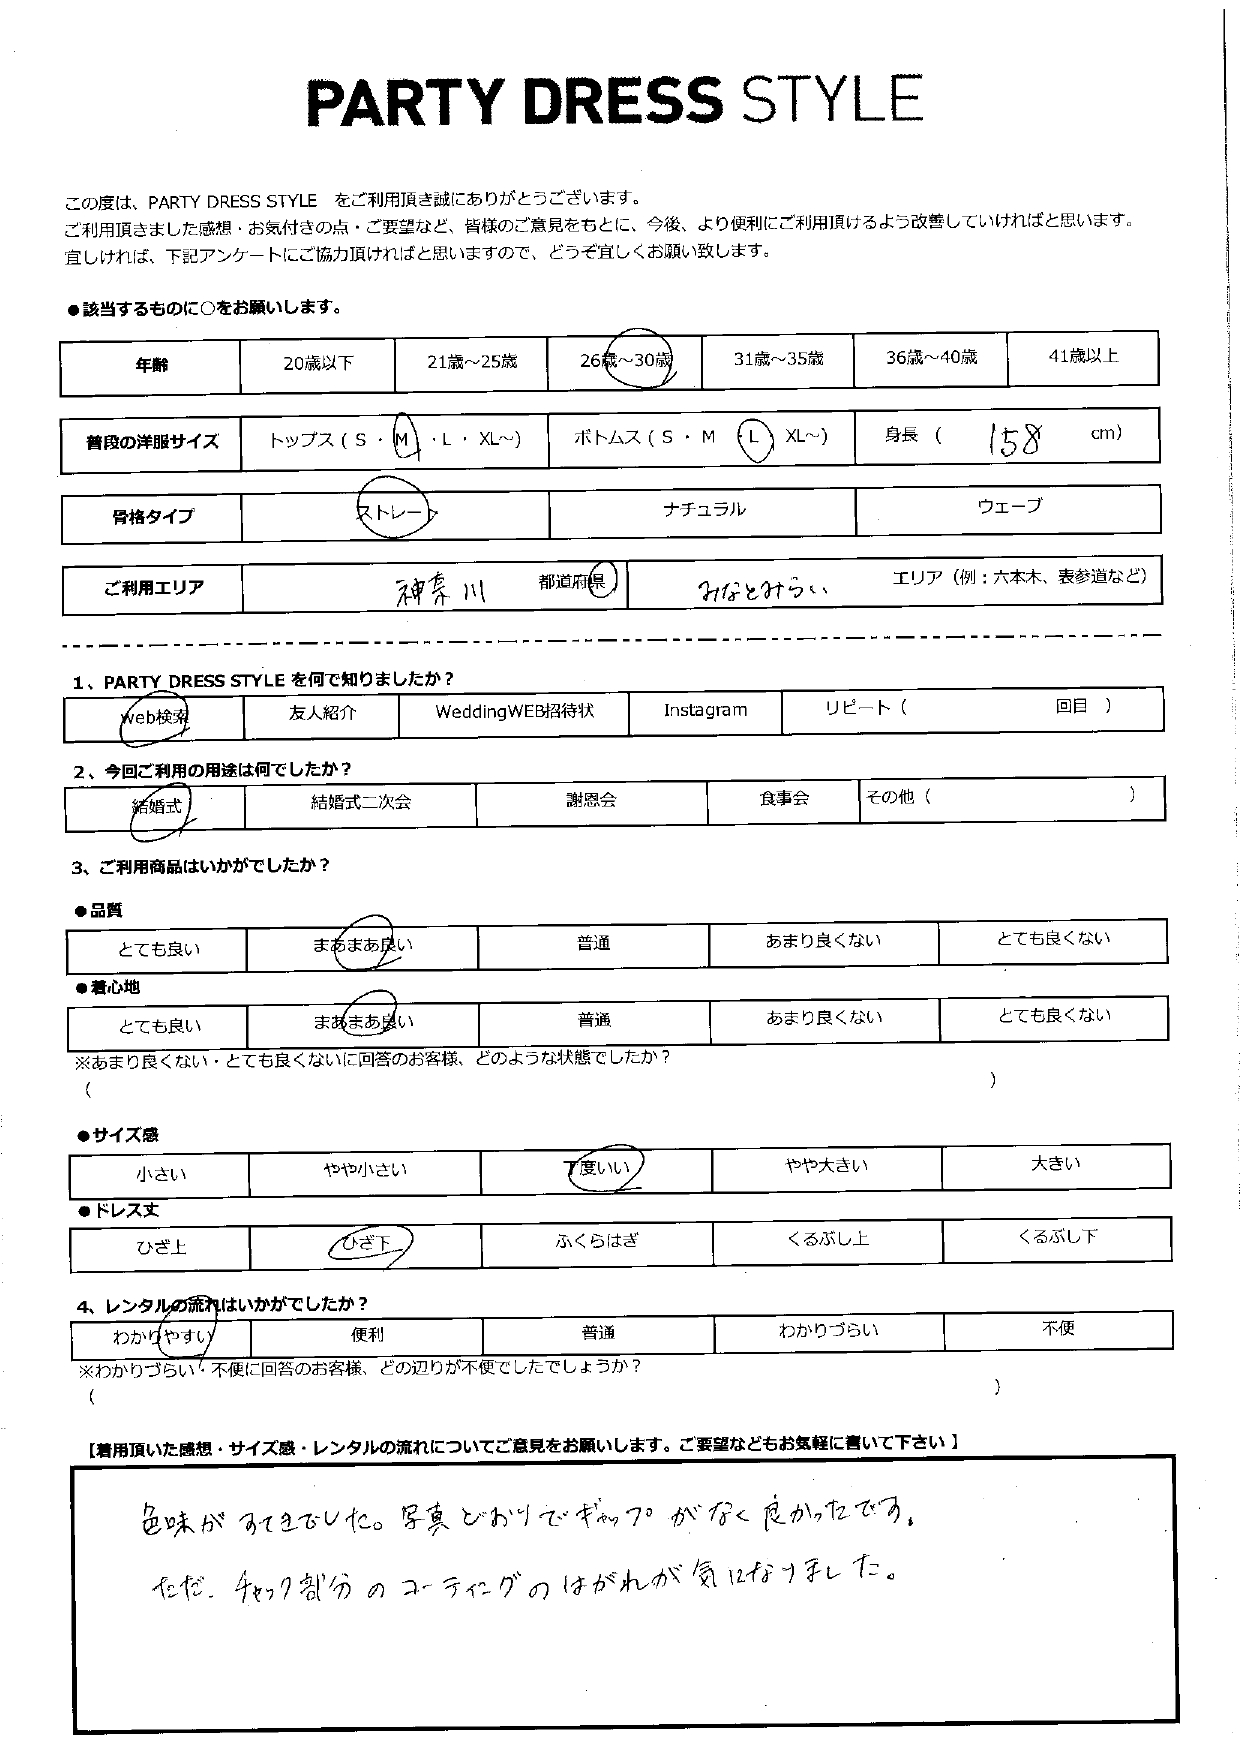 PARTY DRESS STYLE
この度は、PARTY DRESS STYLE をご利用頂き誠にありがとうございます。
ご利用頂きました感想・お気付きの点・ご要望など、皆様のご意見をもとに、今後、より便利にご利用頂けるよう改善していければと思います。
宜しければ、下記アンケートにご協力頂ければと思いますので、どうぞ宜しくお願い致します。
●該当するものに○をお願いします。
年齢 20歳以下 21歳～25歳 26歳～30歳 31歳～35歳 36歳～40歳 41歳以上
普段の洋服サイズ トップス ( S ・ M ・ L ・ XL～) ボトムス ( S ・ M ・ L XL～) 身長 ( 158 cm)
骨格タイプ ストレート ナチュラル ウェーブ
ご利用エリア 神奈川 都道府県 みなとみらい エリア（例：六本木、表参道など）
1、PARTY DRESS STYLE を何で知りましたか？
Web検索 友人紹介 WeddingWEB招待状 Instagram リピート ( 回目 )
2、今回ご利用の用途は何でしたか？
結婚式 結婚式二次会 謝恩会 食事会 その他 ( )
3、ご利用商品はいかがでしたか？
●品質
とても良い まあまあ良い 普通 あまり良くない とても良くない
●着心地
とても良い まあまあ良い 普通 あまり良くない とても良くない
※あまり良くない・とても良くないに回答のお客様、どのような状態でしたか？
( )
●サイズ感
小さい やや小さい 丁度いい やや大きい 大きい
●ドレス丈
ひざ上 ひざ下 ふくらはぎ くるぶし上 くるぶし下
4、レンタルの流れはいかがでしたか？
わかりやすい 便利 普通 わかりづらい 不便
※わかりづらい・不便に回答のお客様、どの辺りが不便でしたでしょうか？
( )
【着用頂いた感想・サイズ感・レンタルの流れについてご意見をお願いします。ご要望などもお気軽に書いて下さい】
色味がすてきでした。写真どおりでギャップがなく良かったです。
ただ、チャック部分のコーティングのはがれが気になりました。